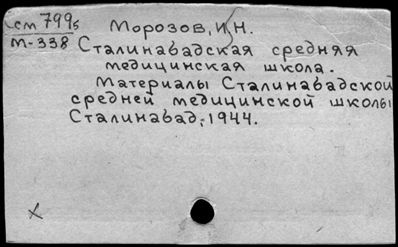 см 7995
М-338
Морозов, И.Н.
Сталинабадская средняя
медицинская школа.
Материалы Сталинабадской
средней медицинской школы
Сталинабад, 1944.